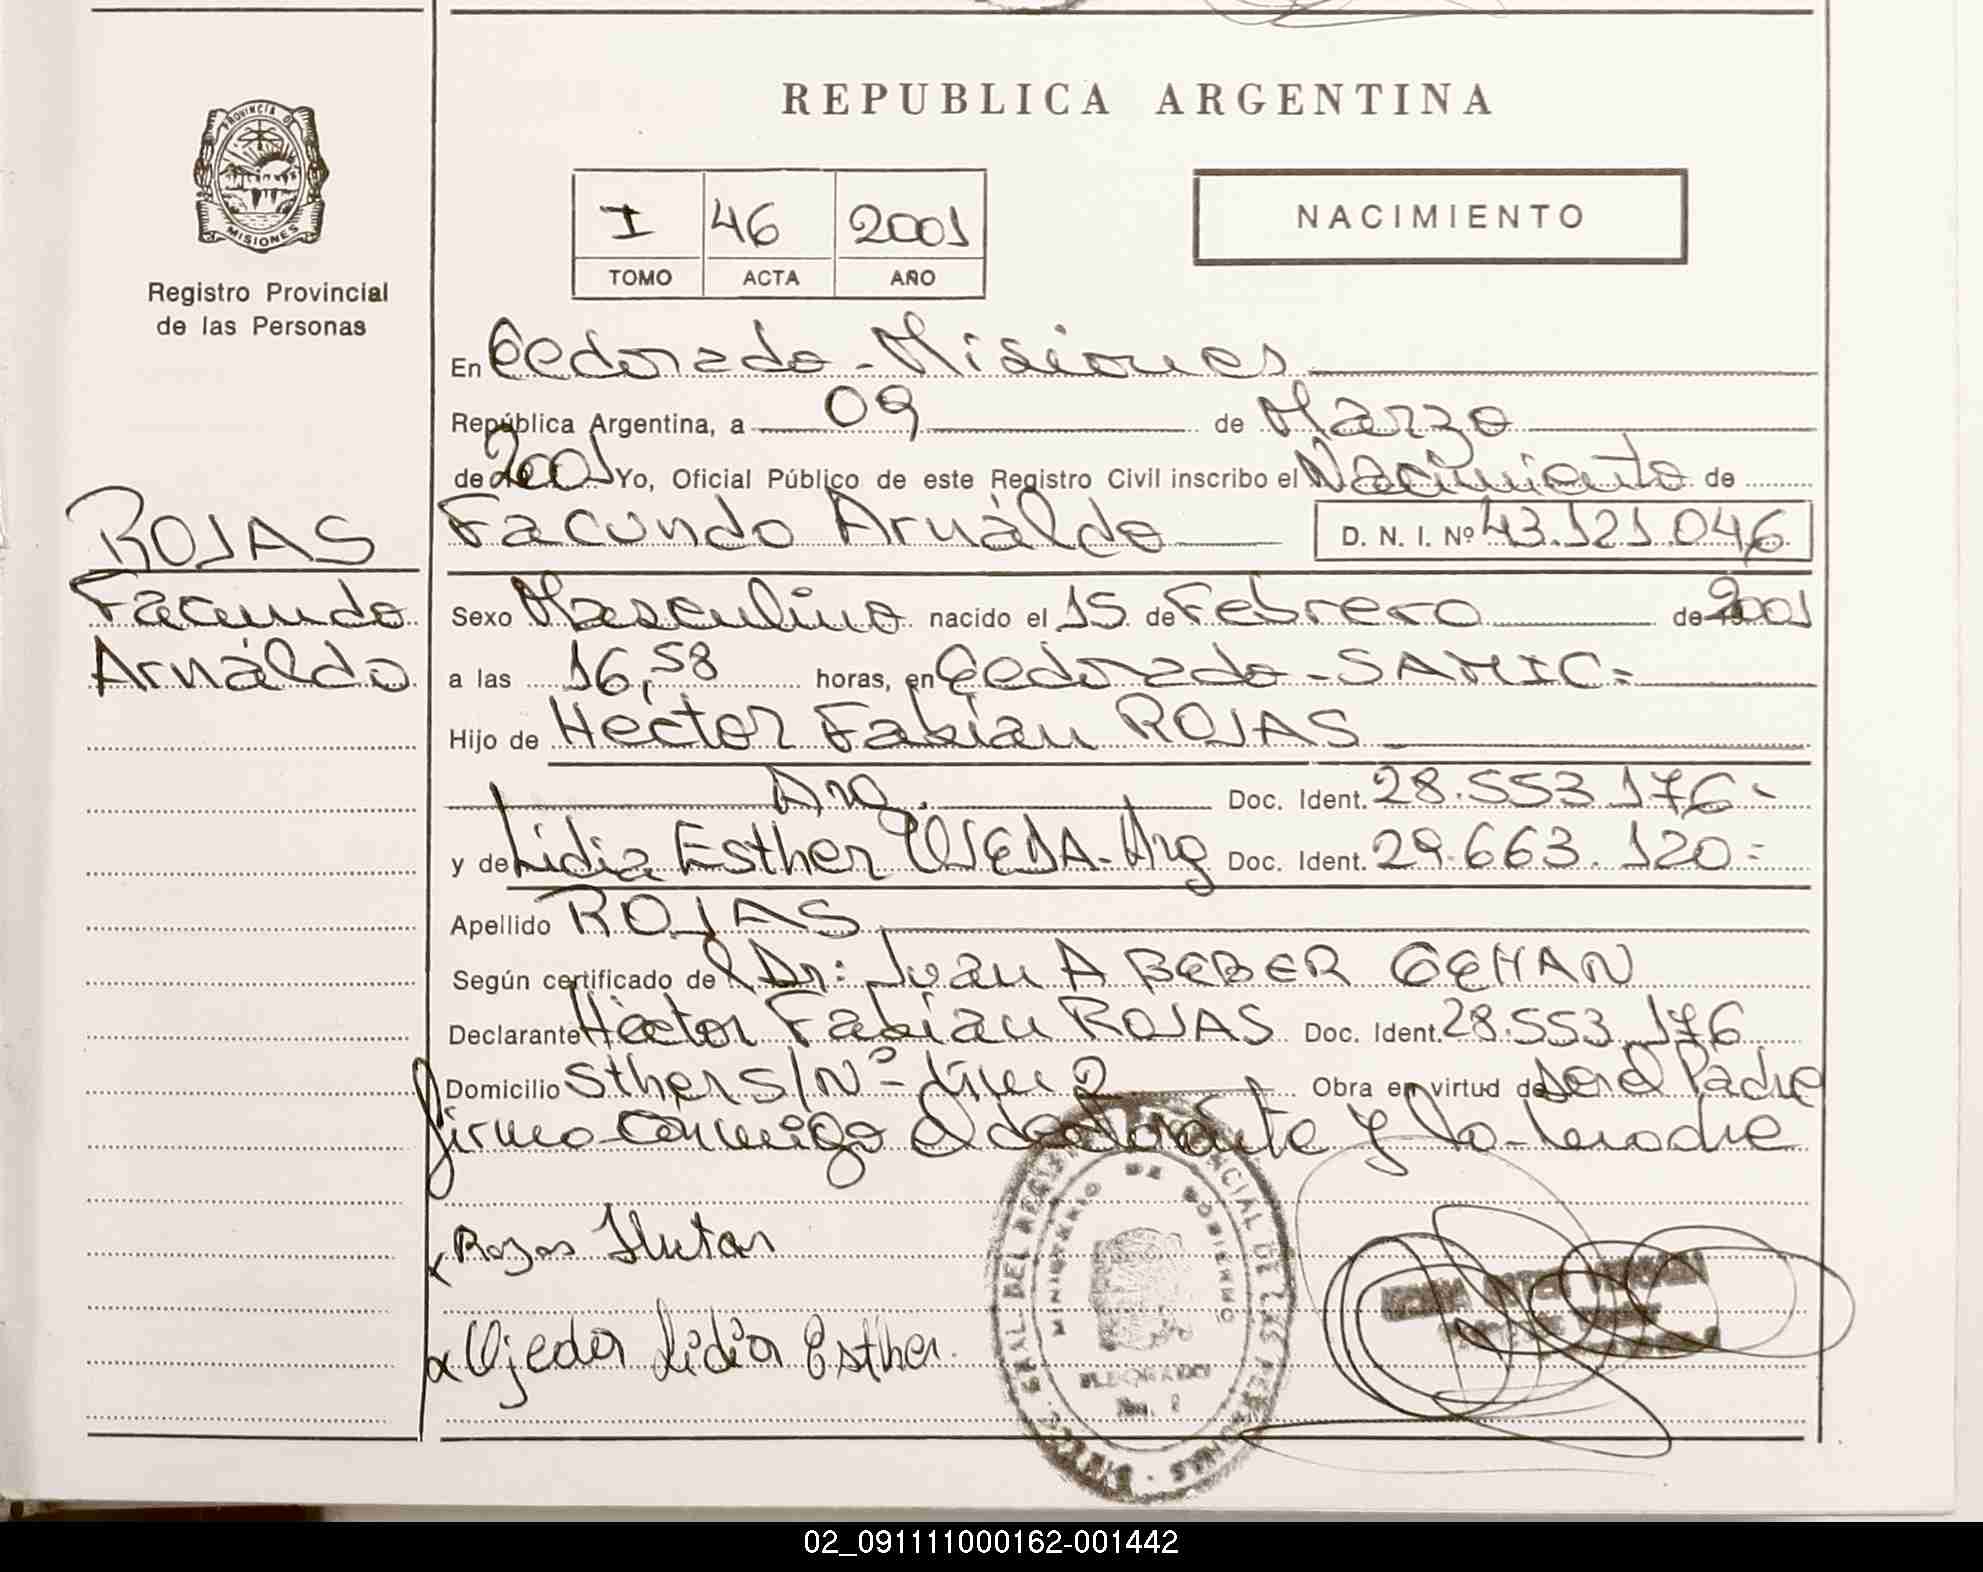 REPUBLICA ARGENTINA
PROVINCIA DE
MISIONES
Registro Provincial
de las Personas
I 46 2001
TOMO ACTA AÑO
NACIMIENTO
En Eldorado - Misiones
República Argentina, a 09 de Marzo
de 2001 Yo, Oficial Público de este Registro Civil inscribo el Nacimiento de
ROJAS
Facundo
Arnáldo
Facundo Arnáldo D. N. I. Nº 43.121.046
Sexo Masculino nacido el 15 de Febrero de 2001
a las 16,58 horas, en Eldorado - SAMIC=
Hijo de Héctor Fabian ROJAS
Arg. Doc. Ident. 28.553.176-
y de Lidia Esther OJEDA - Arg Doc. Ident. 29.663.120=
Apellido ROJAS
Según certificado del Dr: Juan A BEBER
Declarante Héctor Fabian ROJAS Doc. Ident. 28.553.176
Domicilio Sther S/Nº - 2 Obra en virtud de ser el Padre
firma conmigo el declarante y la madre
Rojas
Ojeda Lidia Esther.
MINISTERIO DE GOBIERNO
ELDORADO
02_091111000162-001442